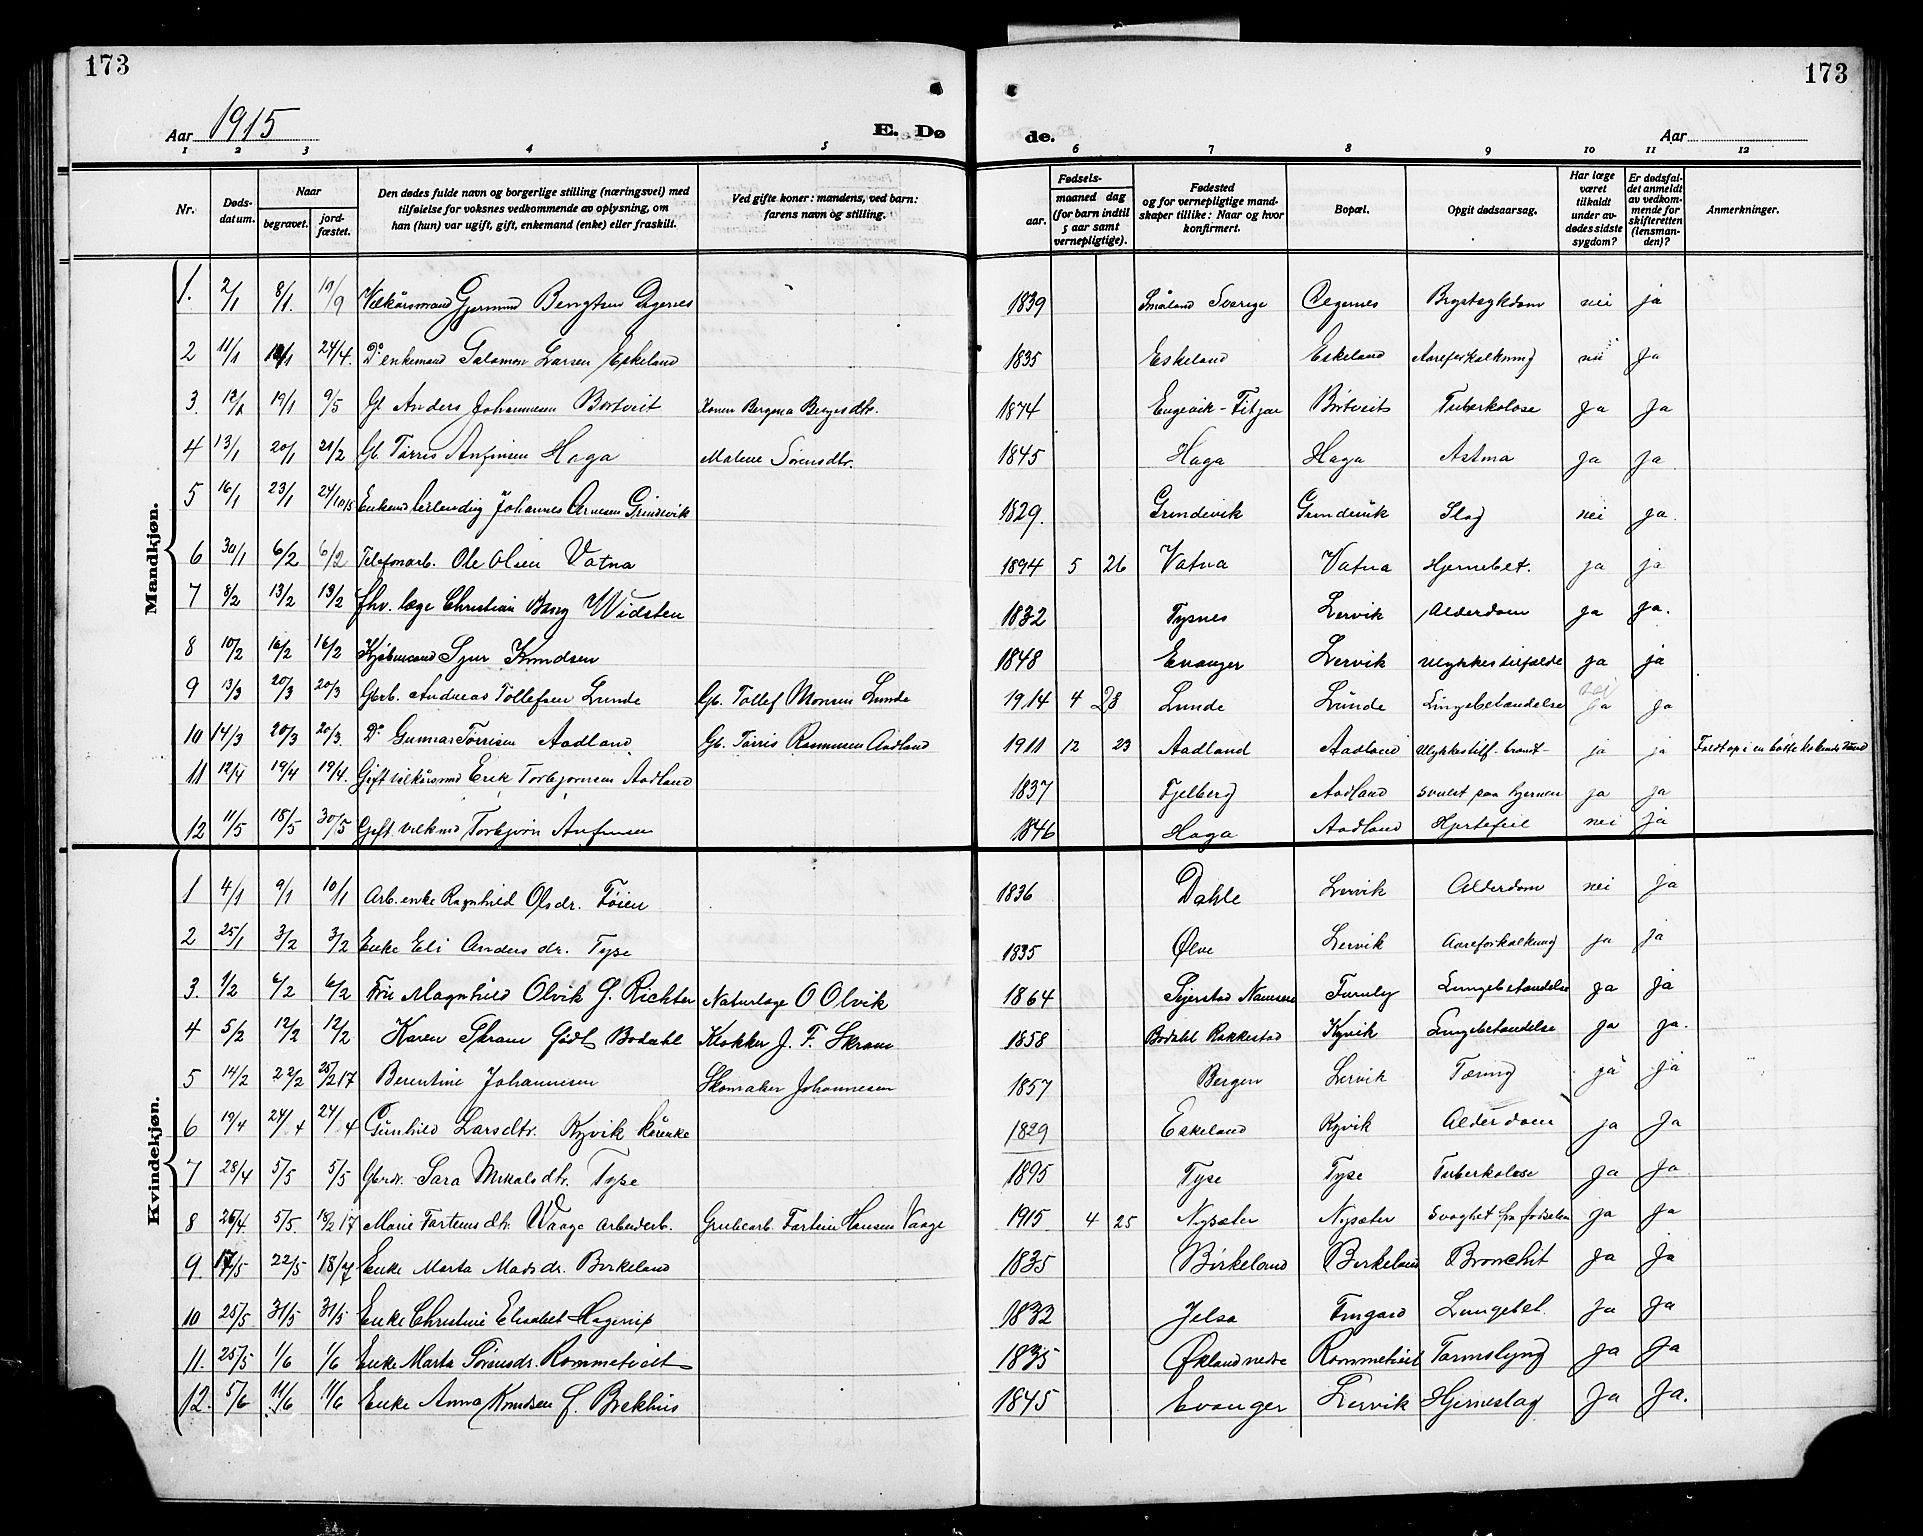 173 173
Aar 1915 E. Dø de. Aar
1 2 3 4 5 6 7 8 9 10 11 12
Nr. Døds-datum. Naar begravet. jord-fæstet. Den dødes fulde navn og borgerlige stilling (næringsvei) med tilføielse for voksnes vedkommende av oplysning, om han (hun) var ugift, gift, enkemand (enke) eller fraskilt. Ved gifte koner: mandens, ved barn: farens navn og stilling. Fødsels- aar. maaned dag (for barn indtil 5 aar samt vernepligtige). Fødested og for vernepligtige mand-skaper tillike: Naar og hvor konfirmert. Bopæl. Opgit dødsaarsag. Har læge været tilkaldt under av-dødes sidste sygdom? Er dødsfal-det anmeldt av vedkom-mende for skifteretten (lensman-den)? Anmerkninger.
Mandkjøn.
1. 2/1 8/1. 10/9 Vilkårsmand Gjermund Bengtsen Digernes 1839 Småland Sverige Digernes Brystsykdom nei ja
2 11/1 18/1 24/4. Do enkemand Salomon Larsen Eskeland 1835 Eskeland Eskeland Aareforkalkning nei Ja
3. 12/1 19/1 9/5 Gb Anders Johannesen Bortveit Konen Bergena Bergesdtr. 1874 Engevik - Fitjar Börtveit Tuberkolose ja Ja
4 13/1 20/1 21/2 Gb. Tørris Anfinsen Haga Malene Sørensdtr. 1845 Haga Haga Astma ja ja
5 16/1 23/1 24/10 15 Enkemd lærlending Johannes Arnesen Grindevik 1829. Grindevik Grindevik Slag nei ja.
6 30/1 6/2 6/2 Telefonarb. Ole Olsen Vatna 1894 5 26 Vatna Vatna Hjernebet. ja ja
7 8/2 13/2 13/2 fhv. læge Christian Bang Widsten 1832 Tysnes Lervik Alderdom ja ja.
8 10/2 16/2 16/2 Kjøbmand Sjur Knudsen 1848 Evanger Lervik Ulykkestilfælde ja ja
9 13/3 20/3 20/3 Gbrb. Andreas Tollefsen Lunde Gb. Tollef Monsen Lunde 1914 4 28 Lunde Lunde Lungebetændelse ja ja
10 14/3 20/3 20/3. Do Gunnar Tørrisen Aadland Gb. Tørris Rasmussen Aadland 1911 12 23 Aadland Aadland Ulykkestilf. brandt - ja ja Faldt op i en bøtte kokende vand
11 12/4 19/4 19/4. Gift vilkårsmd Erik Torbjørnsen Aadland 1837 Fjelberg Aadland svulst paa hjernen ja ja
12 11/5 18/5 30/5 Gift vilkmd Torbjørn Anfinsen 1846 Haga Aadland Hjertefeil nei ja
Kvindekjøn.
1 4/1 9/1 10/1 Arb. enke Ragnhild Olsdr. Tøien 1836 Dahle Lervik Alderdom nei ja
2 25/1 3/2 3/2 Enke Eli Andersdr. Tyse 1835 Ølve Lervik Aareforkalkning ja ja
3. 1/2 6/2 6/2 Fru Magnhild Olvik f. Richter Naturlæge O Olvik 1864 Sejerstad Namsen Turnly Lungebetændelse ja ja
4 5/2 12/2 12/2 Karen Skram født Bodahl Klokker J. F. Skram 1858 Bodahl Rakkestad Kyvik Lungebetændelse ja ja.
5 14/2 22/2 25/2 17 Berentine Johannesen Skomaker Johannesen 1857 Bergen Lervik Tæring ja ja
6 19/4 24/4 24/4 Gunhild Larsdtr. Kyvik kårenke 1829 Eskeland Kyvik Alderdom ja Ja
7 28/4 5/5 5/5 Gbrdr. Sara Mikalsdtr. Tyse 1895 Tyse Tyse Tuberkolose ja ja
8 26/4. 5/5. 18/2 17 Marie Fartensdtr Waage arbeiderb. Grubearb. Fartein Hansen Vaage 1915 4 25 Nysæter Nysæter svaghet fra fødselen ja ja
9. 17/5 22/5 18/7 Enke Marta Madsdr. Birkeland 1835 Birkeland Birkeland Bronchit ja ja
10 25/5 31/5 31/5 Enke Christine Elisabet Hagerup 1832 Jelsa Tingard Lungebet. ja ja
11. 25/5 1/6 1/6 Enke Marta Sørensdr. Rommetveit 1835 Økland nedre Rommetveit Tarmslyng ja Ja
12. 5/6 11/6 11/6 Enke Anna Knudsen f. Brekhus 1845 Evanger Lervik Hjerneslag Ja Ja.